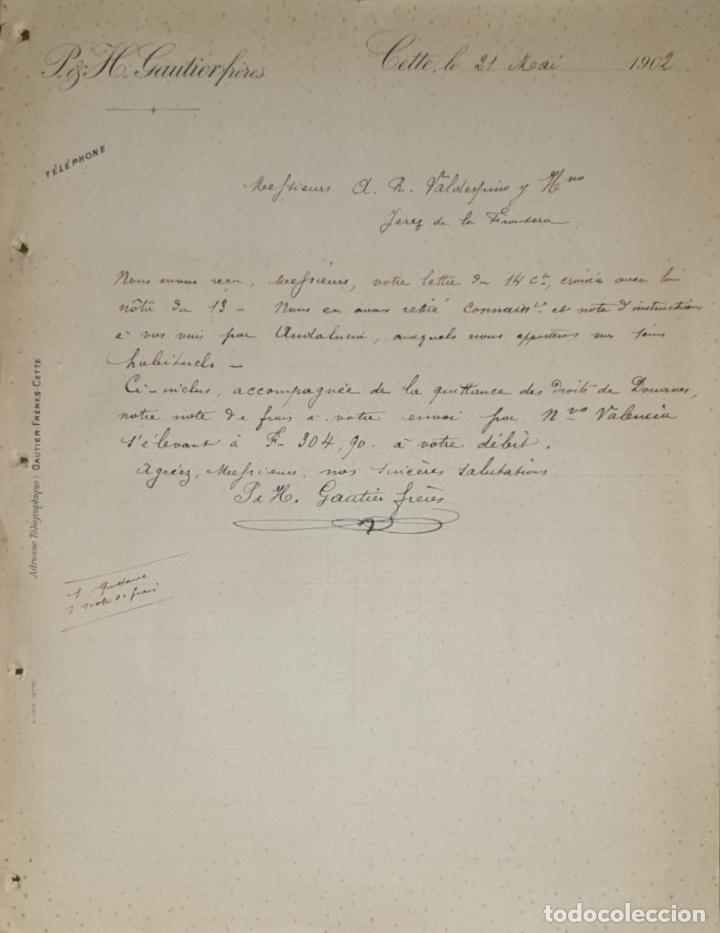 P. & H. Gautier frères
Cette, le 21 Mai 1902
TÉLÉPHONE
Messieurs A. R. Valdespino y Hno
Jerez de la Frontera
Nous avons reçu, Messieurs, votre lettre du 14 ct, croisée avec la
nôtre du 13 - Nous en avons retiré connaisst et note d'instructions
à vos vins par Andalucia, auxquels nous apportons nos soins
habituels -
Ci-inclus, accompagnée de la quittance des droits de Douanes,
notre note de frais à votre envoi par Nvo Valencia
s'élevant à F. 304,90 à votre débit.
Agréez, Messieurs, nos sincères salutations
P & H. Gautier frères
1 quittance
1 note de frais
Adresse Télégraphique: GAUTIER-FRÈRES-CETTE
todocoleccion